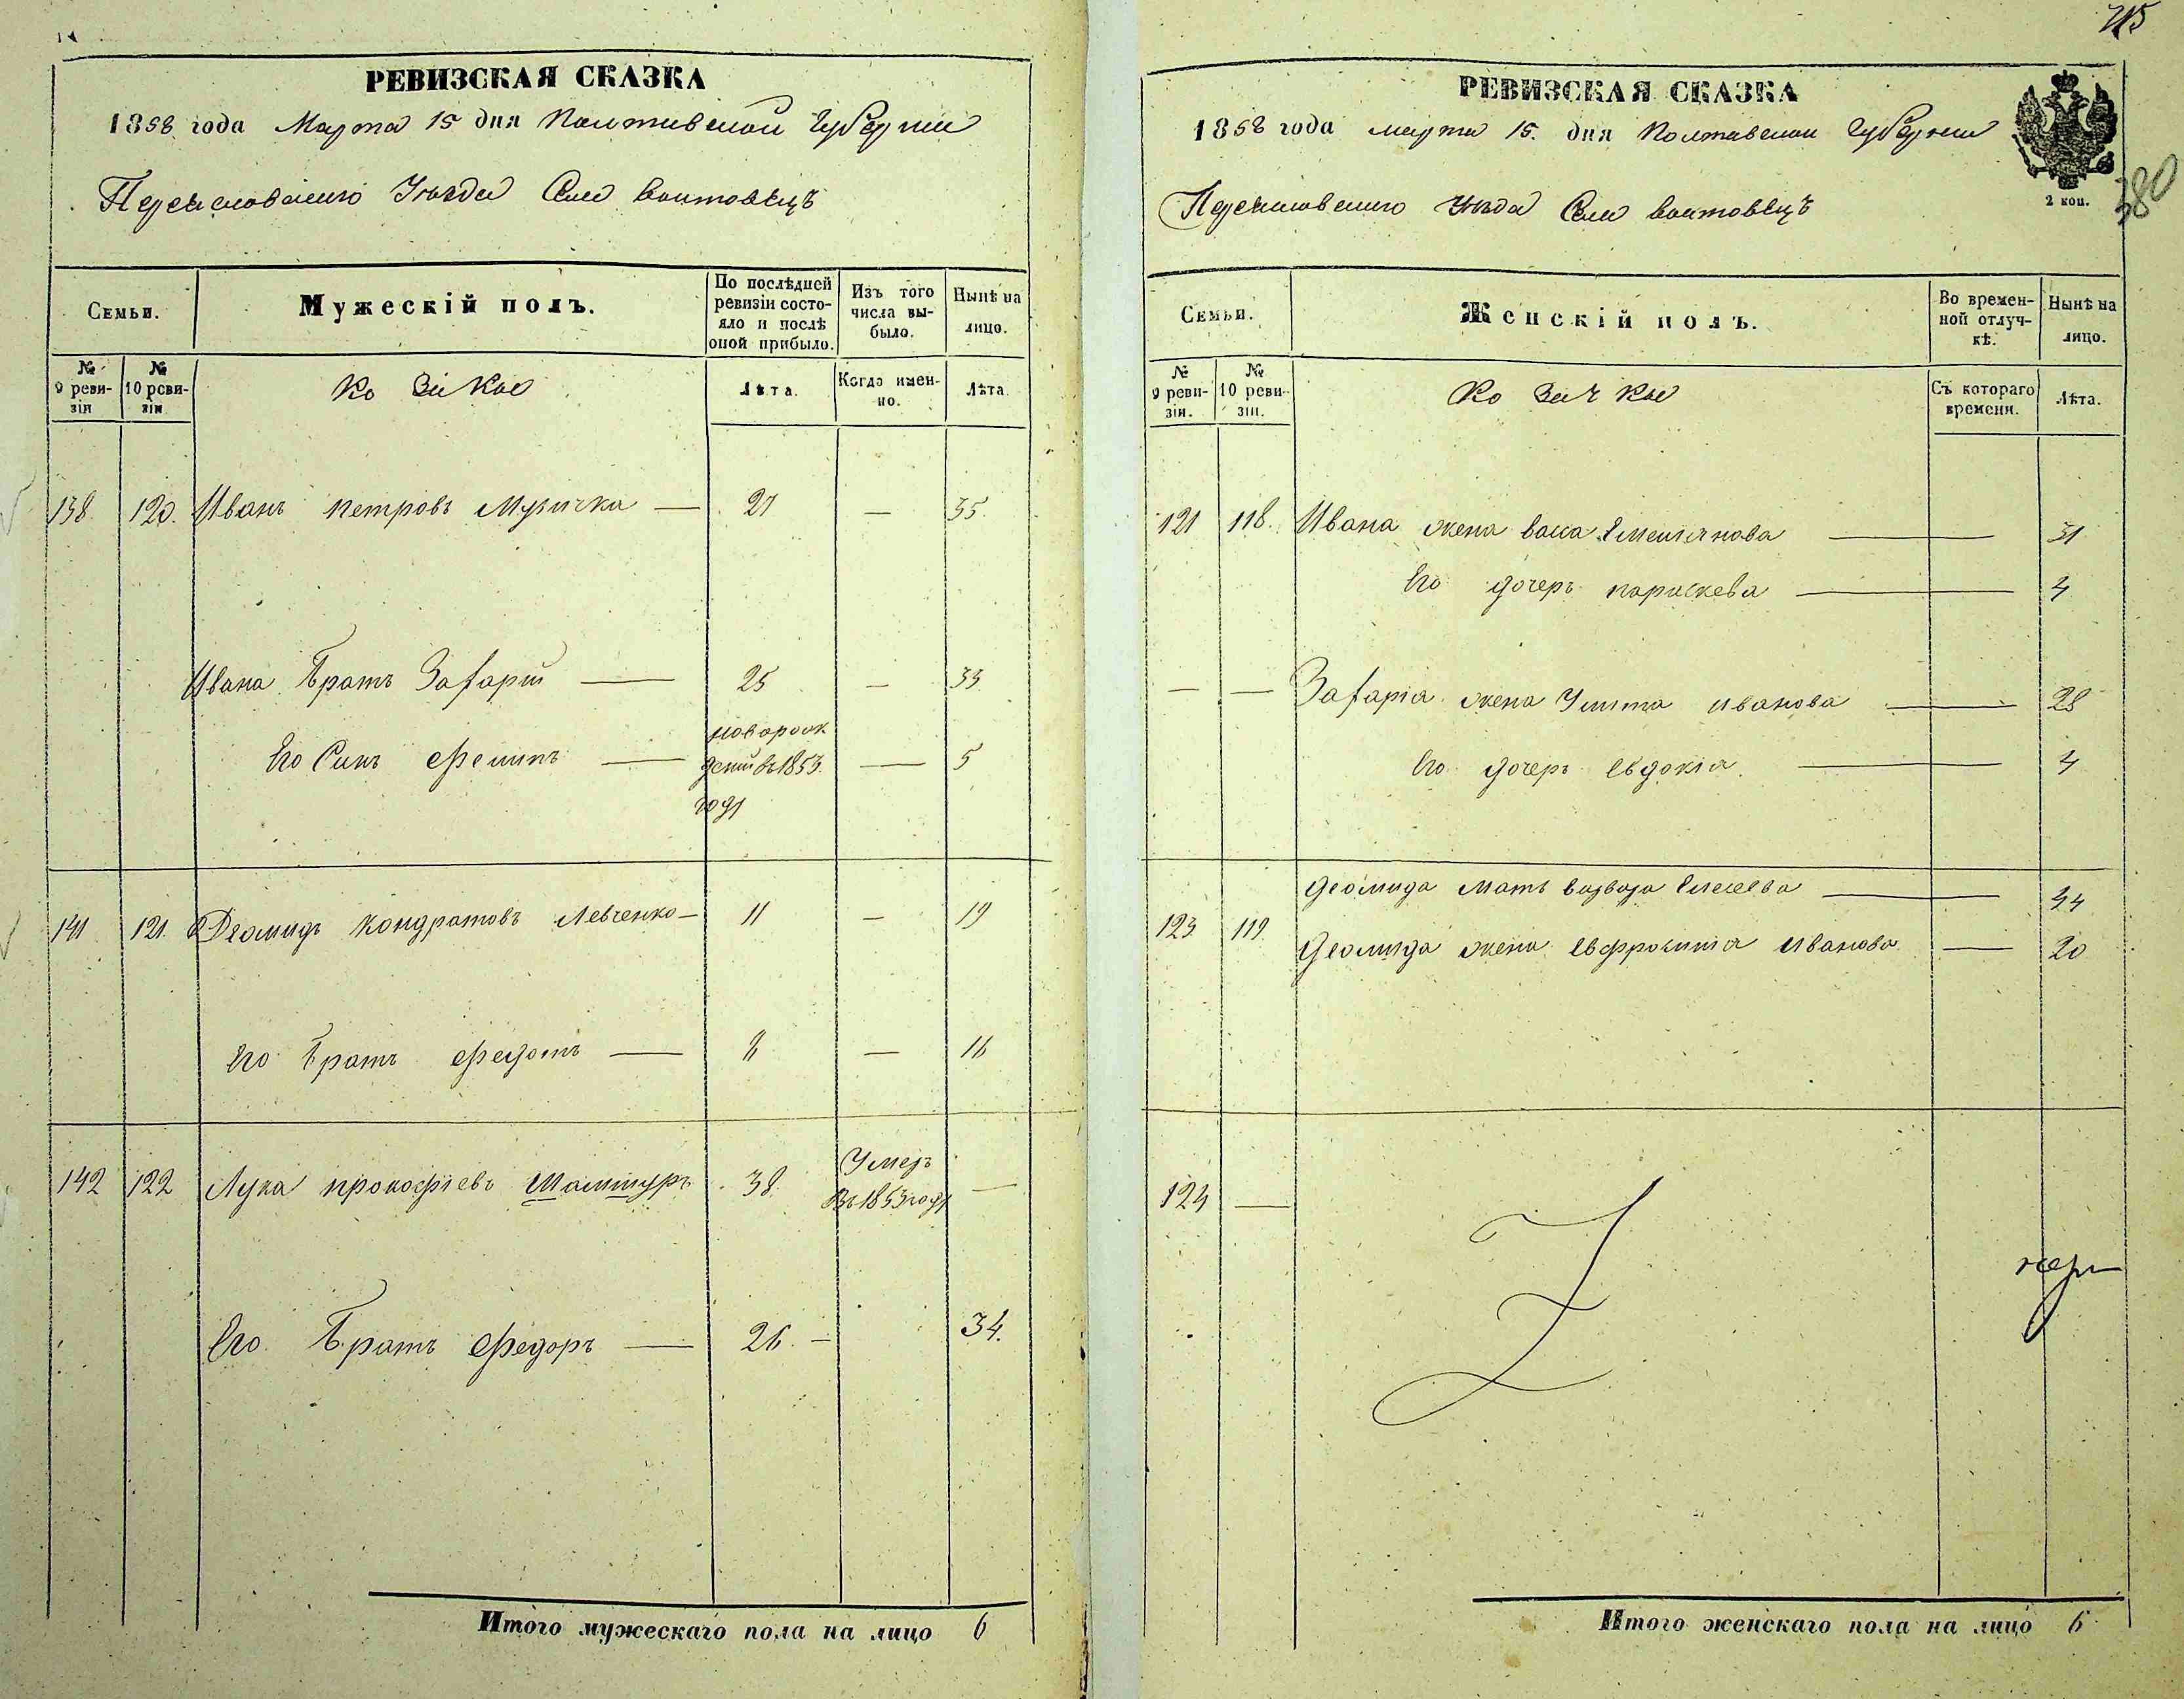 РЕВИЗСКАЯ СКАЗКА
1858 года Марта 15 дня Полтавской Губернии
Переяславского Уезда Села Воитовецъ
Семьи.
Мужескій полъ.
По послѣдней ревизіи состояло и послѣ оной прибыло.
Изъ того числа выбыло.
Нынѣ на лицо.
№ 9 ревизіи
№ 10 ревизіи
Козаки
Лѣта.
Когда именно.
Лѣта.
138 120. Иванъ Петровъ Музичка — 27 — 35.
Ивана Братъ Захарій — 25 — 33
Его Синъ Филипъ — новорожденій въ 1853 году — 5
141 121. Деомидъ Кондратовъ Левченко — 11 — 19
Его Братъ Федотъ — 8 — 16
142 122 Лука Прокофіевъ 38. Умеръ въ 1853 году —
Его Братъ Федоръ — 26 — 34.
Итого мужескаго пола на лицо 6
715
РЕВИЗСКАЯ СКАЗКА
1858 года марта 15. дня Полтавской Губернии
Переяславского Уезда Села Воитовецъ
2 коп.
380
Семьи.
Женскій полъ.
Во временной отлучкѣ.
Нынѣ на лицо.
№ 9 ревизіи.
№ 10 ревизіи.
Козачки
Съ котораго времени.
Лѣта.
121 118. Ивана жена Васса Емелиянова — 31
Его дочеръ Параскева — 4
— — Захарія жена Улита Иванова — 28
Его дочеръ Евдокія — 4
Деомида мать Варвара Елисеева — 44
123 119 Деомида жена Евфросинія Иванова — 20
124 —
Итого женскаго пола на лицо 6